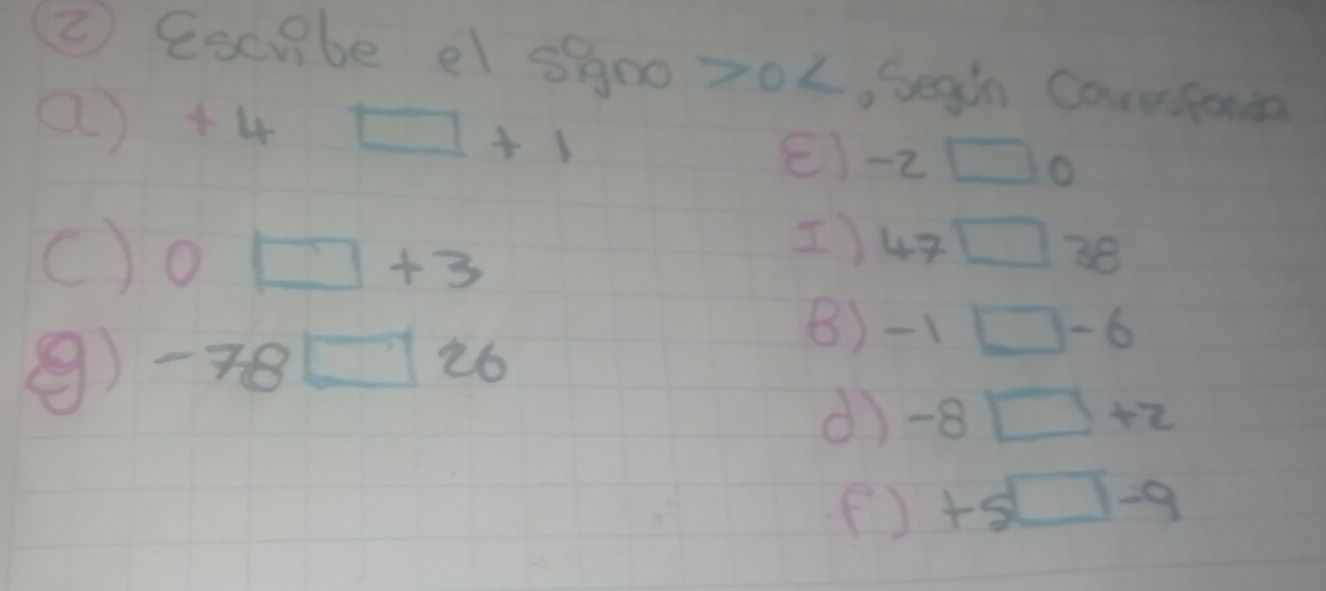 2 Escribe el signo > o <, según corresponda
a) +4 □ +1
c) 0 □ +3
g) -78 □ 26
E) -2 □ 0
I) 47 □ 38
B) -1 □ -6
d) -8 □ +2
f) +5 □ -9